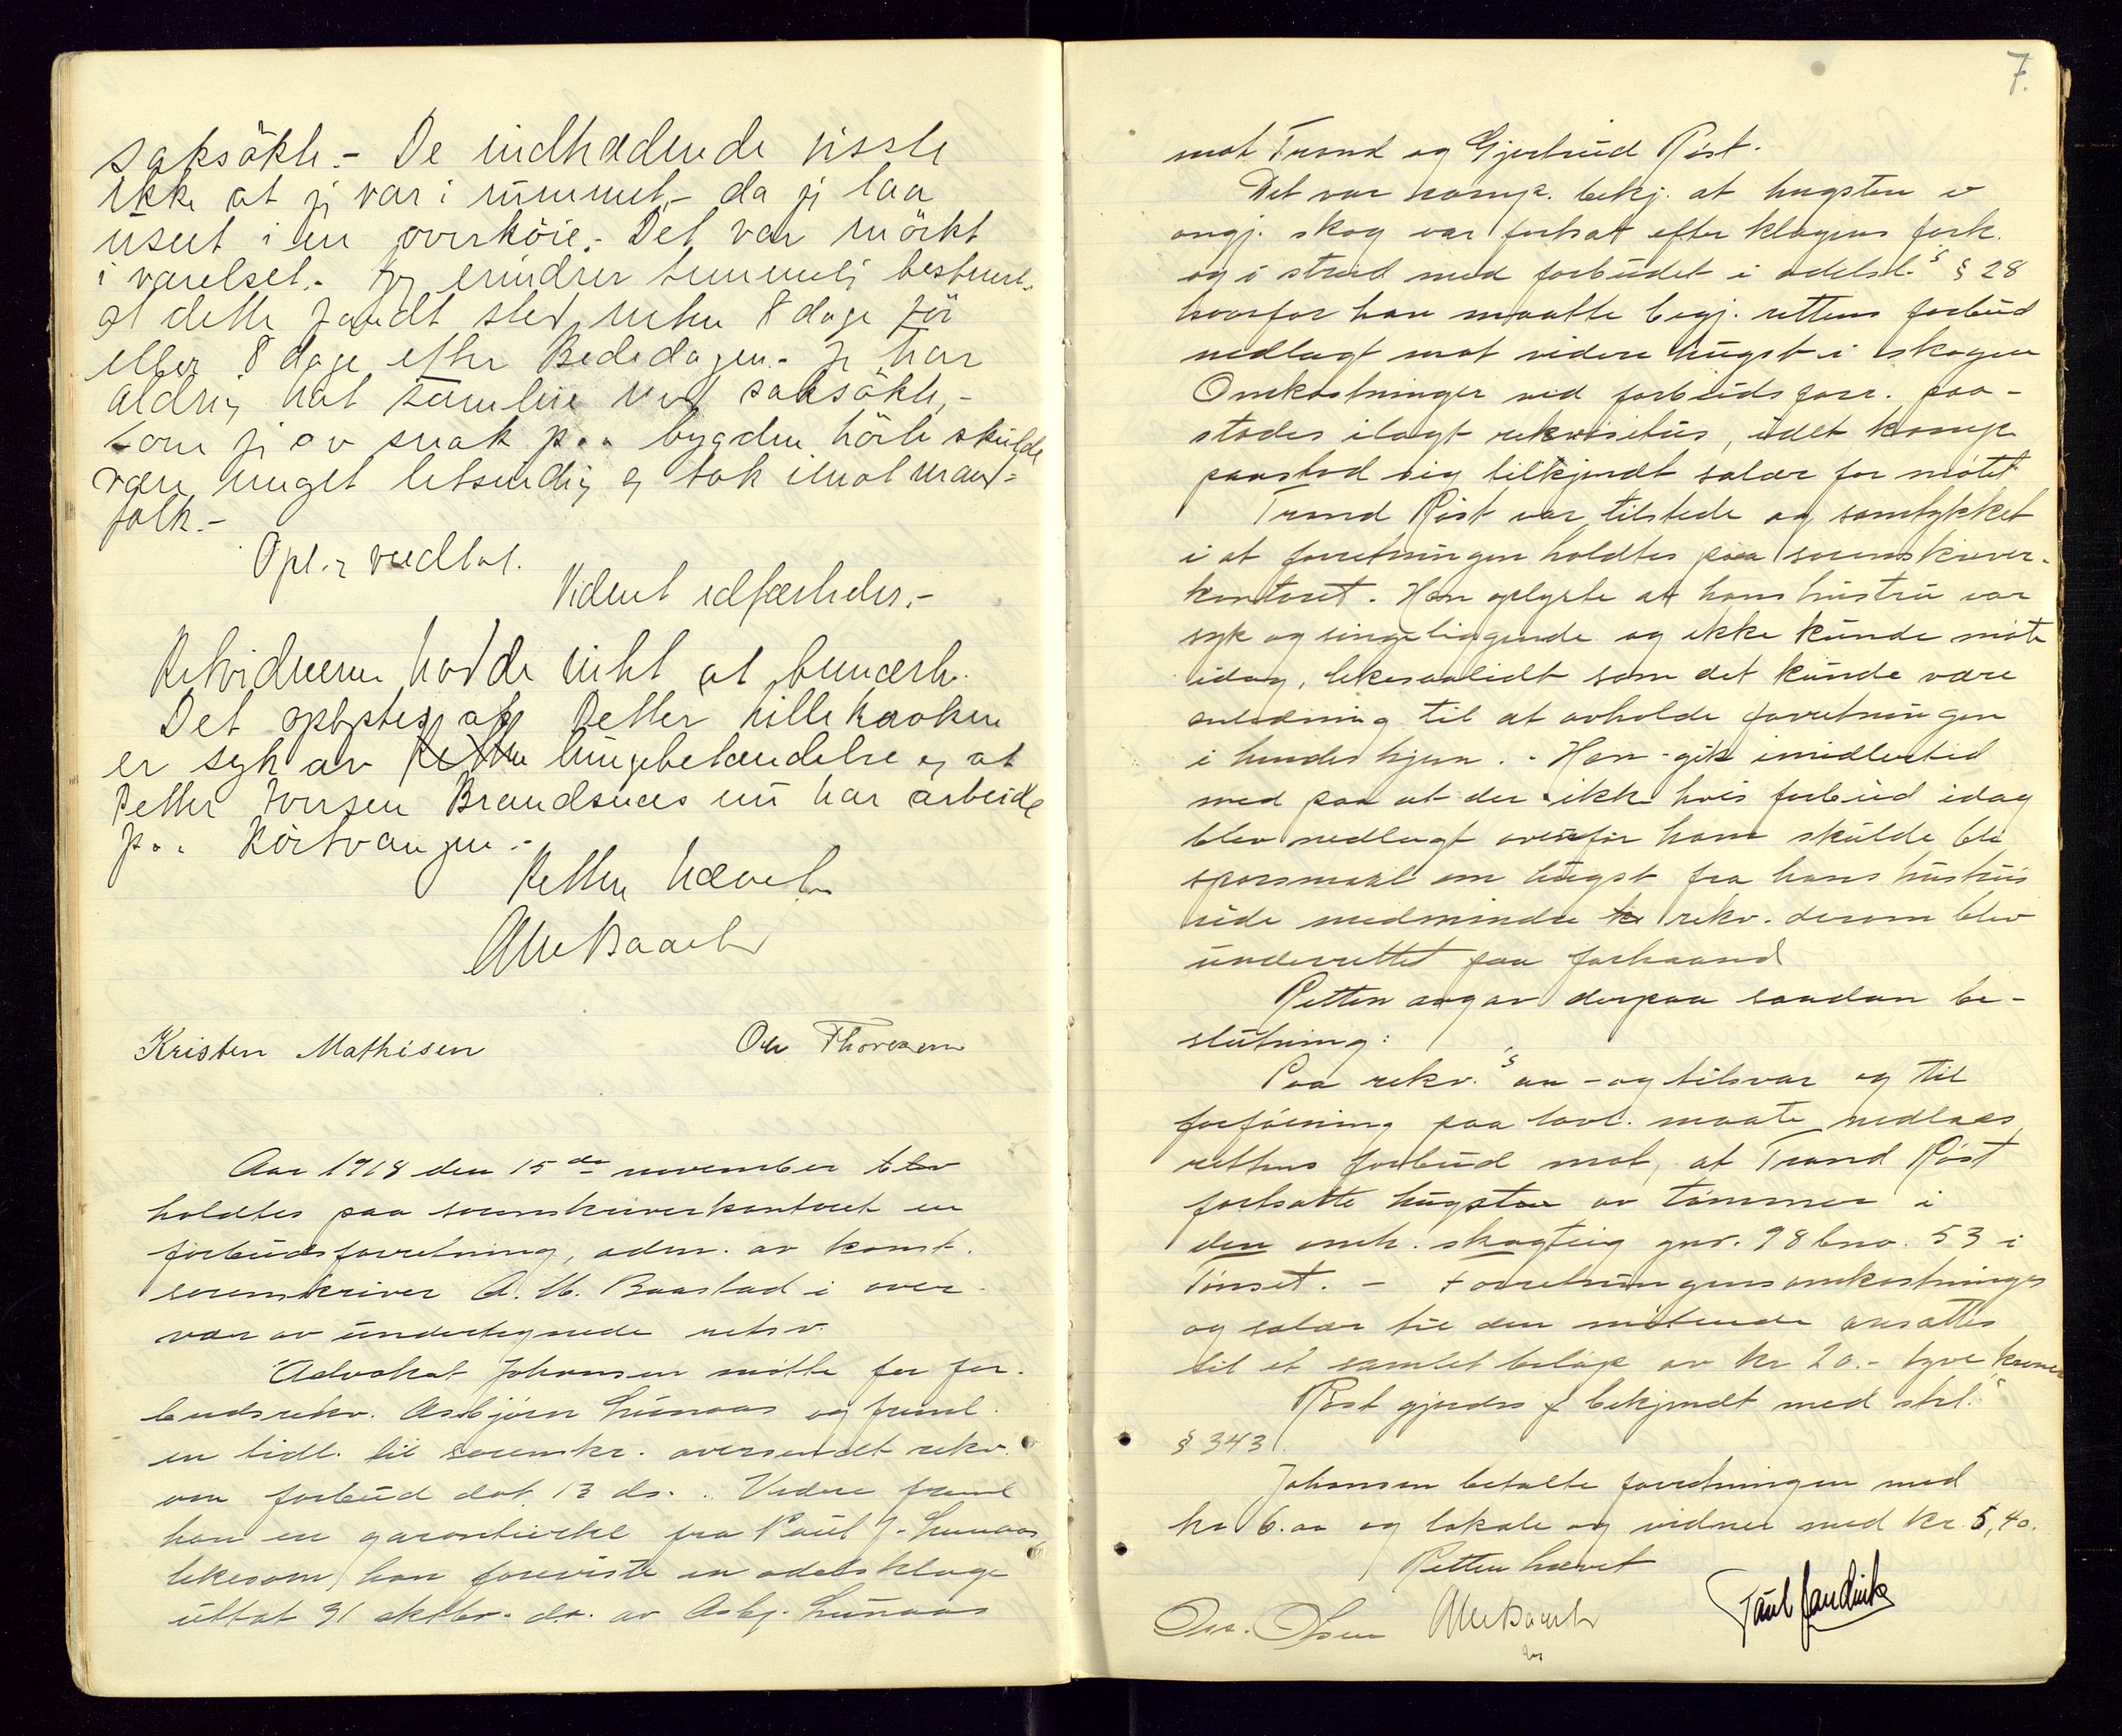 saksökte.- De indtrædende visste
ikke at jg var i rummet,- da jg laa
uset i en overköie.- Det var mörkt
i værelset.- Jeg erindrer temmelig bestemt,
at dette fandt sted, enten 8 dage för
eller 8 dage efter Bededagen.- Jg har
aldrig hat samleie med saksökte,-
som jg av snak paa bygden hörte skulde
være meget letsindig og tok imot mand-
folk.-
Opl. og vedtat.
Vidnet edfæstedes.-
Retsvidnerne hadde intet at bemærke.
Det oplystes at Petter Lillekroken
er syk av lungebetændelse og at
Petter Iversen Brandsnes nu har arbeide
paa Röstvangen.-
Retten hævet
AMBaasta
Kristen Mathisen Ole Thoresen
Aar 1918 den 15de november blev
holdtes paa sorenskriverkontoret en
forbudsforretning, adm. av konst.
sorenskriver A. M. Baastad i over-
vær av undertegnede retsv.
Advokat Johansen mötte for for-
budsrekv. Asbjörn Lunaas og freml.
en tidl. til sorenskr. oversendt rekv.
om forbud dat. 13 ds.. Videre freml
han en garantierkl fra Paul J. Lunaas
likesom han foreviste en odelsklage
uttat 31 oktbr. d.a. av Asbj. Lunaas
7.
mot Trond og Gjertrud Röst.
Det var komp. bekj. at hugsten i
angj. skog var fortsat efter klagens fork.
og i strid med forbudet i odelsl.s § 28
hvorfor han maatte begj. rettens forbud
nedlagt mot videre hugst i skogen
Omkostninger ved forbudsforr. paa-
stodes ilagt rekvisitus, idet komp
paastod sig tilkjendt salær for mötet
Trond Röst var tilstede og samtykket
i at forretningen holdtes paa sorenskriver-
kontoret. Han oplyste at hans hustru var
syk og sengeliggende og ikke kunde möte
idag, likesaalidt som det kunde være
anledning til at avholde forretningen
i hendes hjem. - Han gik imidlertid
med paa at der ikke hvis forbud idag
blev nedlagt overfor ham skulde bli
sporsmaal om hugst fra hans hustrus
side medmindre rekv. derom blev
underrettet paa forhaand
Retten avgav derpaa saadan be-
slutning:
Paa rekv.s an- og tilsvar og til
forföining paa lovl. maate nedlaes
rettens forbud mot, at Trond Röst
fortsatte hugsten av tömmer i
den omh. skogteig gnr. 98 bno. 53 i
Tönset. - Forretningens omkostninger
og salær til den mötende ansattes
til et samlet belöp av kr 20.- tyve kroner
Röst gjordes bekjendt med strl.s
§ 343.
Johansen betalte forretningen med
kr 6.00 og lokale og vidner med kr. 5,40.
Retten hævet
Ole. Olsen AMBaasta Paul Sandvik